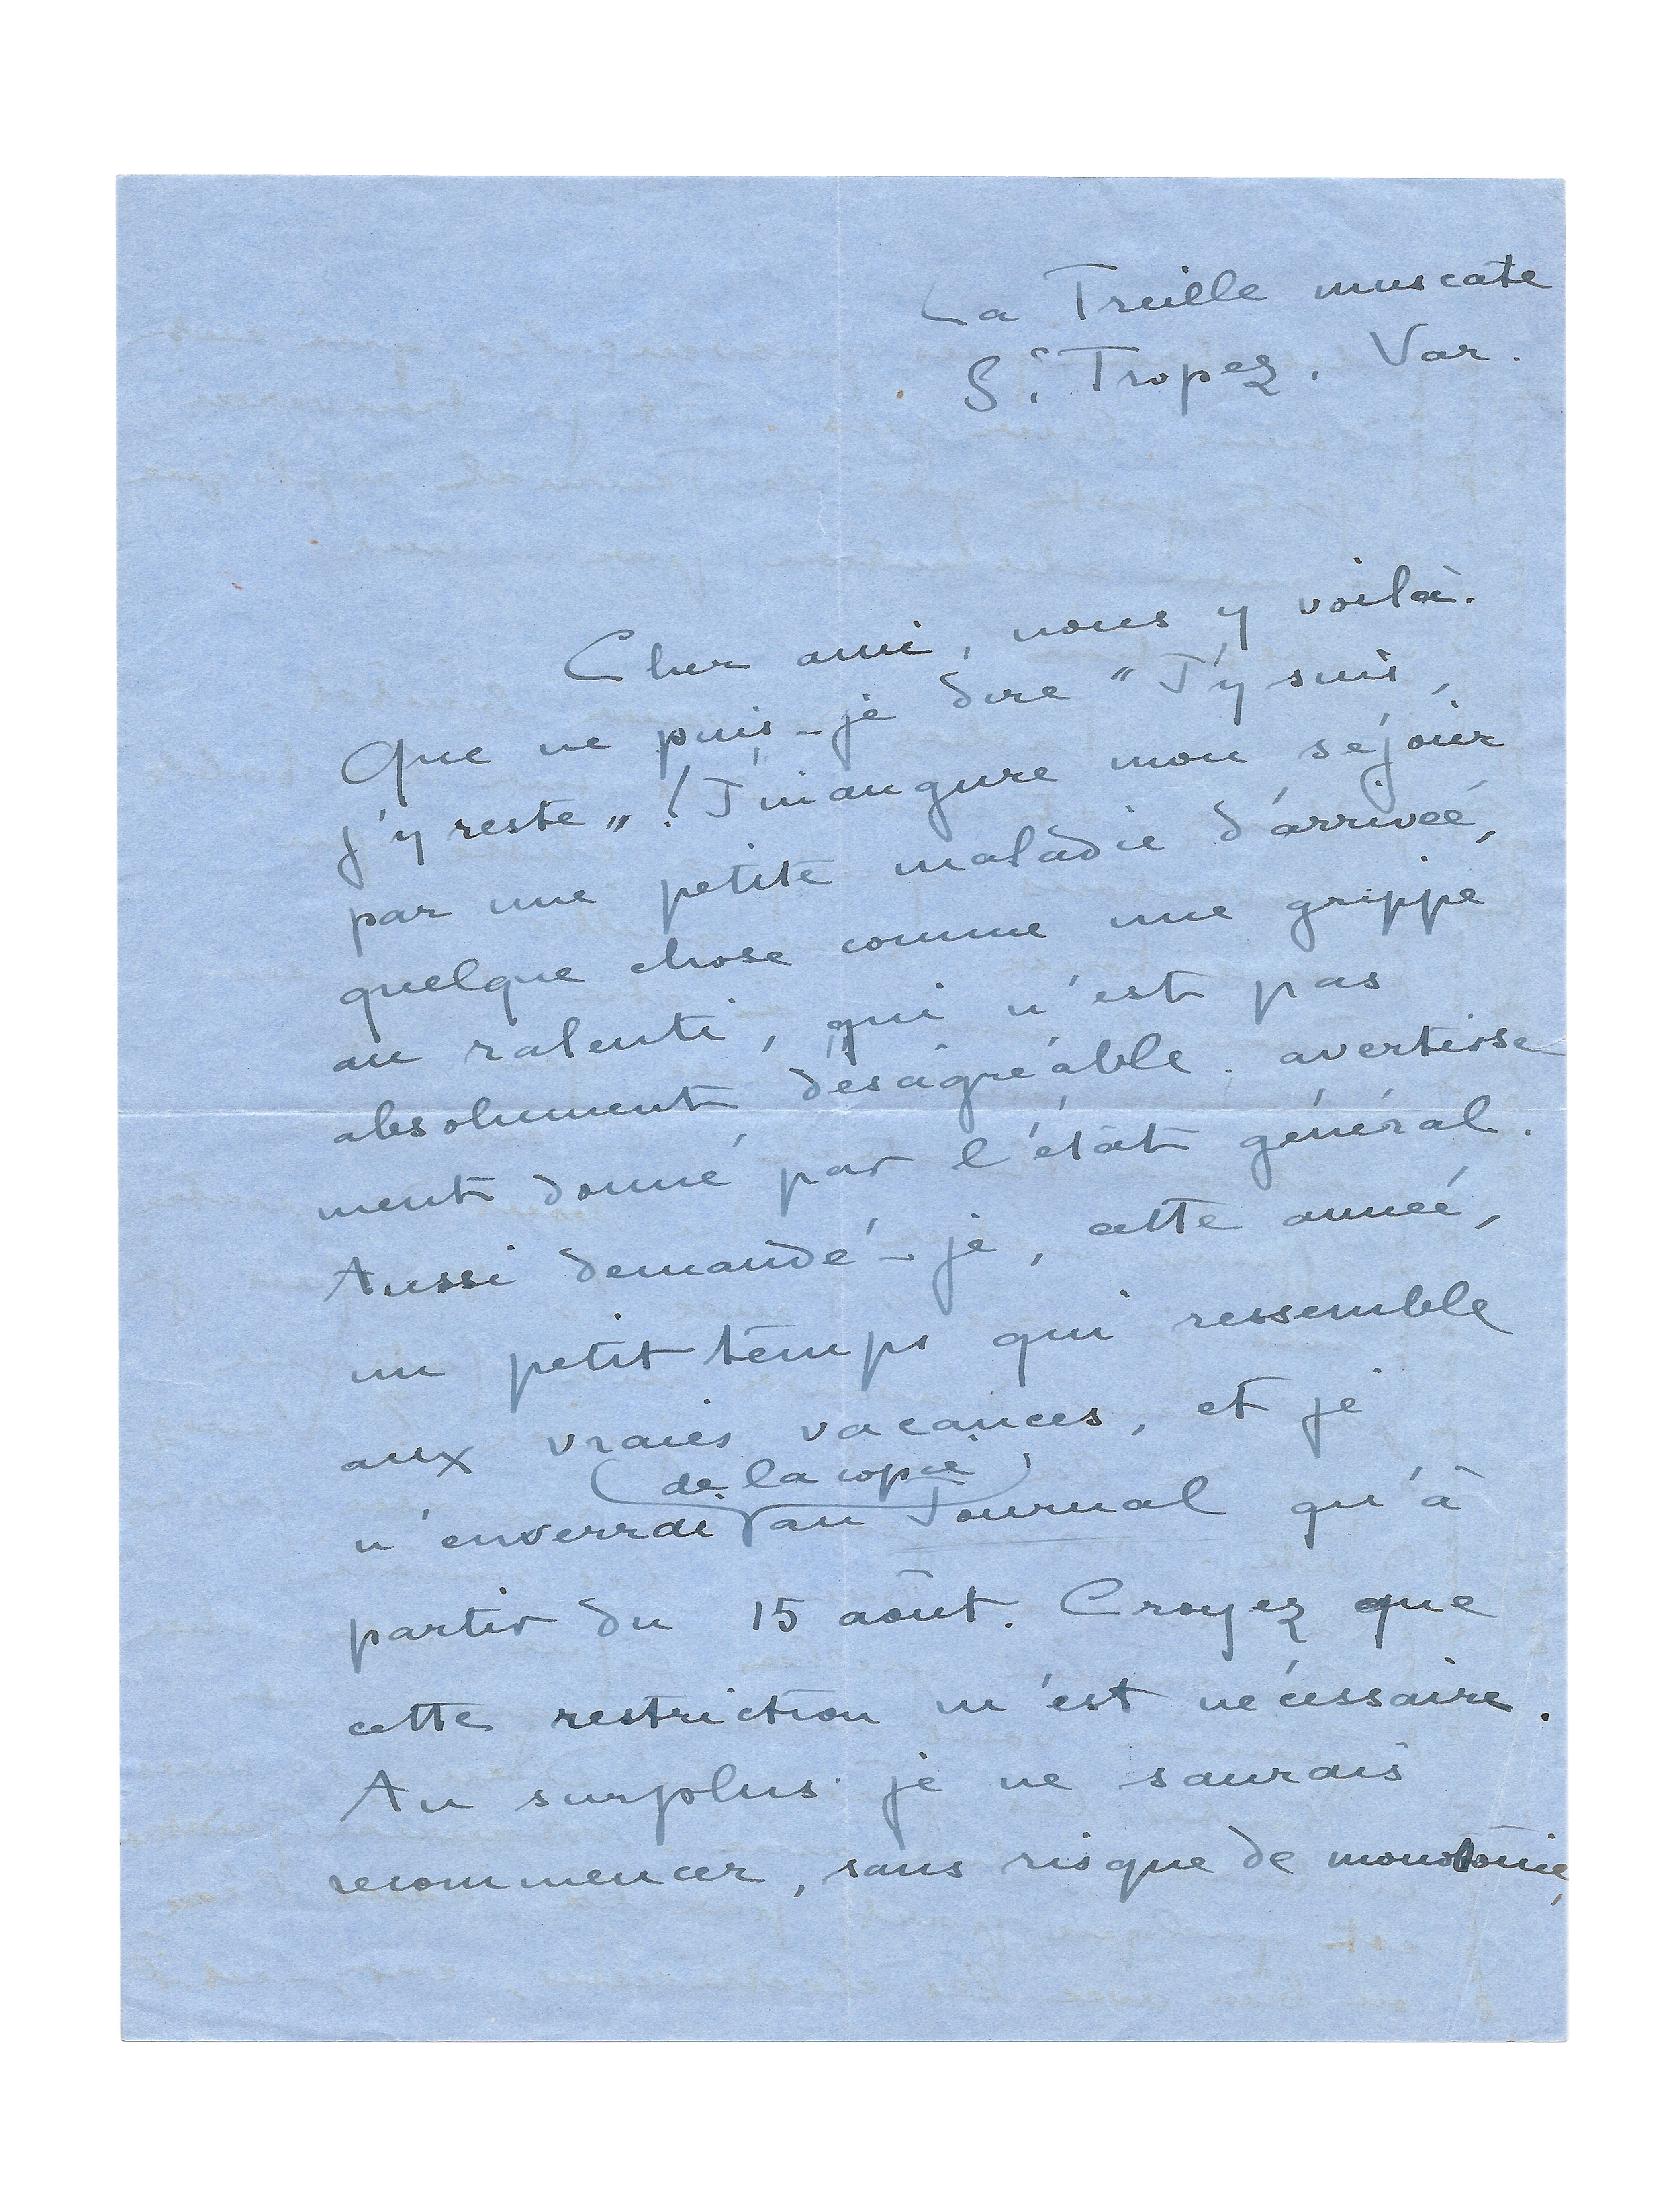 La Treille muscate
St Tropez. Var.
Cher ami, nous y voilà.
Que ne puis-je dire "J'y suis,
j'y reste" ! J'inaugure mon séjour
par une petite maladie d'arrivée,
quelque chose comme une grippe
au ralenti, qui n'est pas
absolument désagréable. avertisse
ment donné par l'état général.
Aussi demandé-je, cette année,
un petit temps qui ressemble
aux vraies vacances, et je
(de la copie)
n'enverrai au Journal qu'à
partir du 15 août. Croyez que
cette restriction m'est nécessaire.
Au surplus je ne saurais
recommencer, sans risque de monotonie,